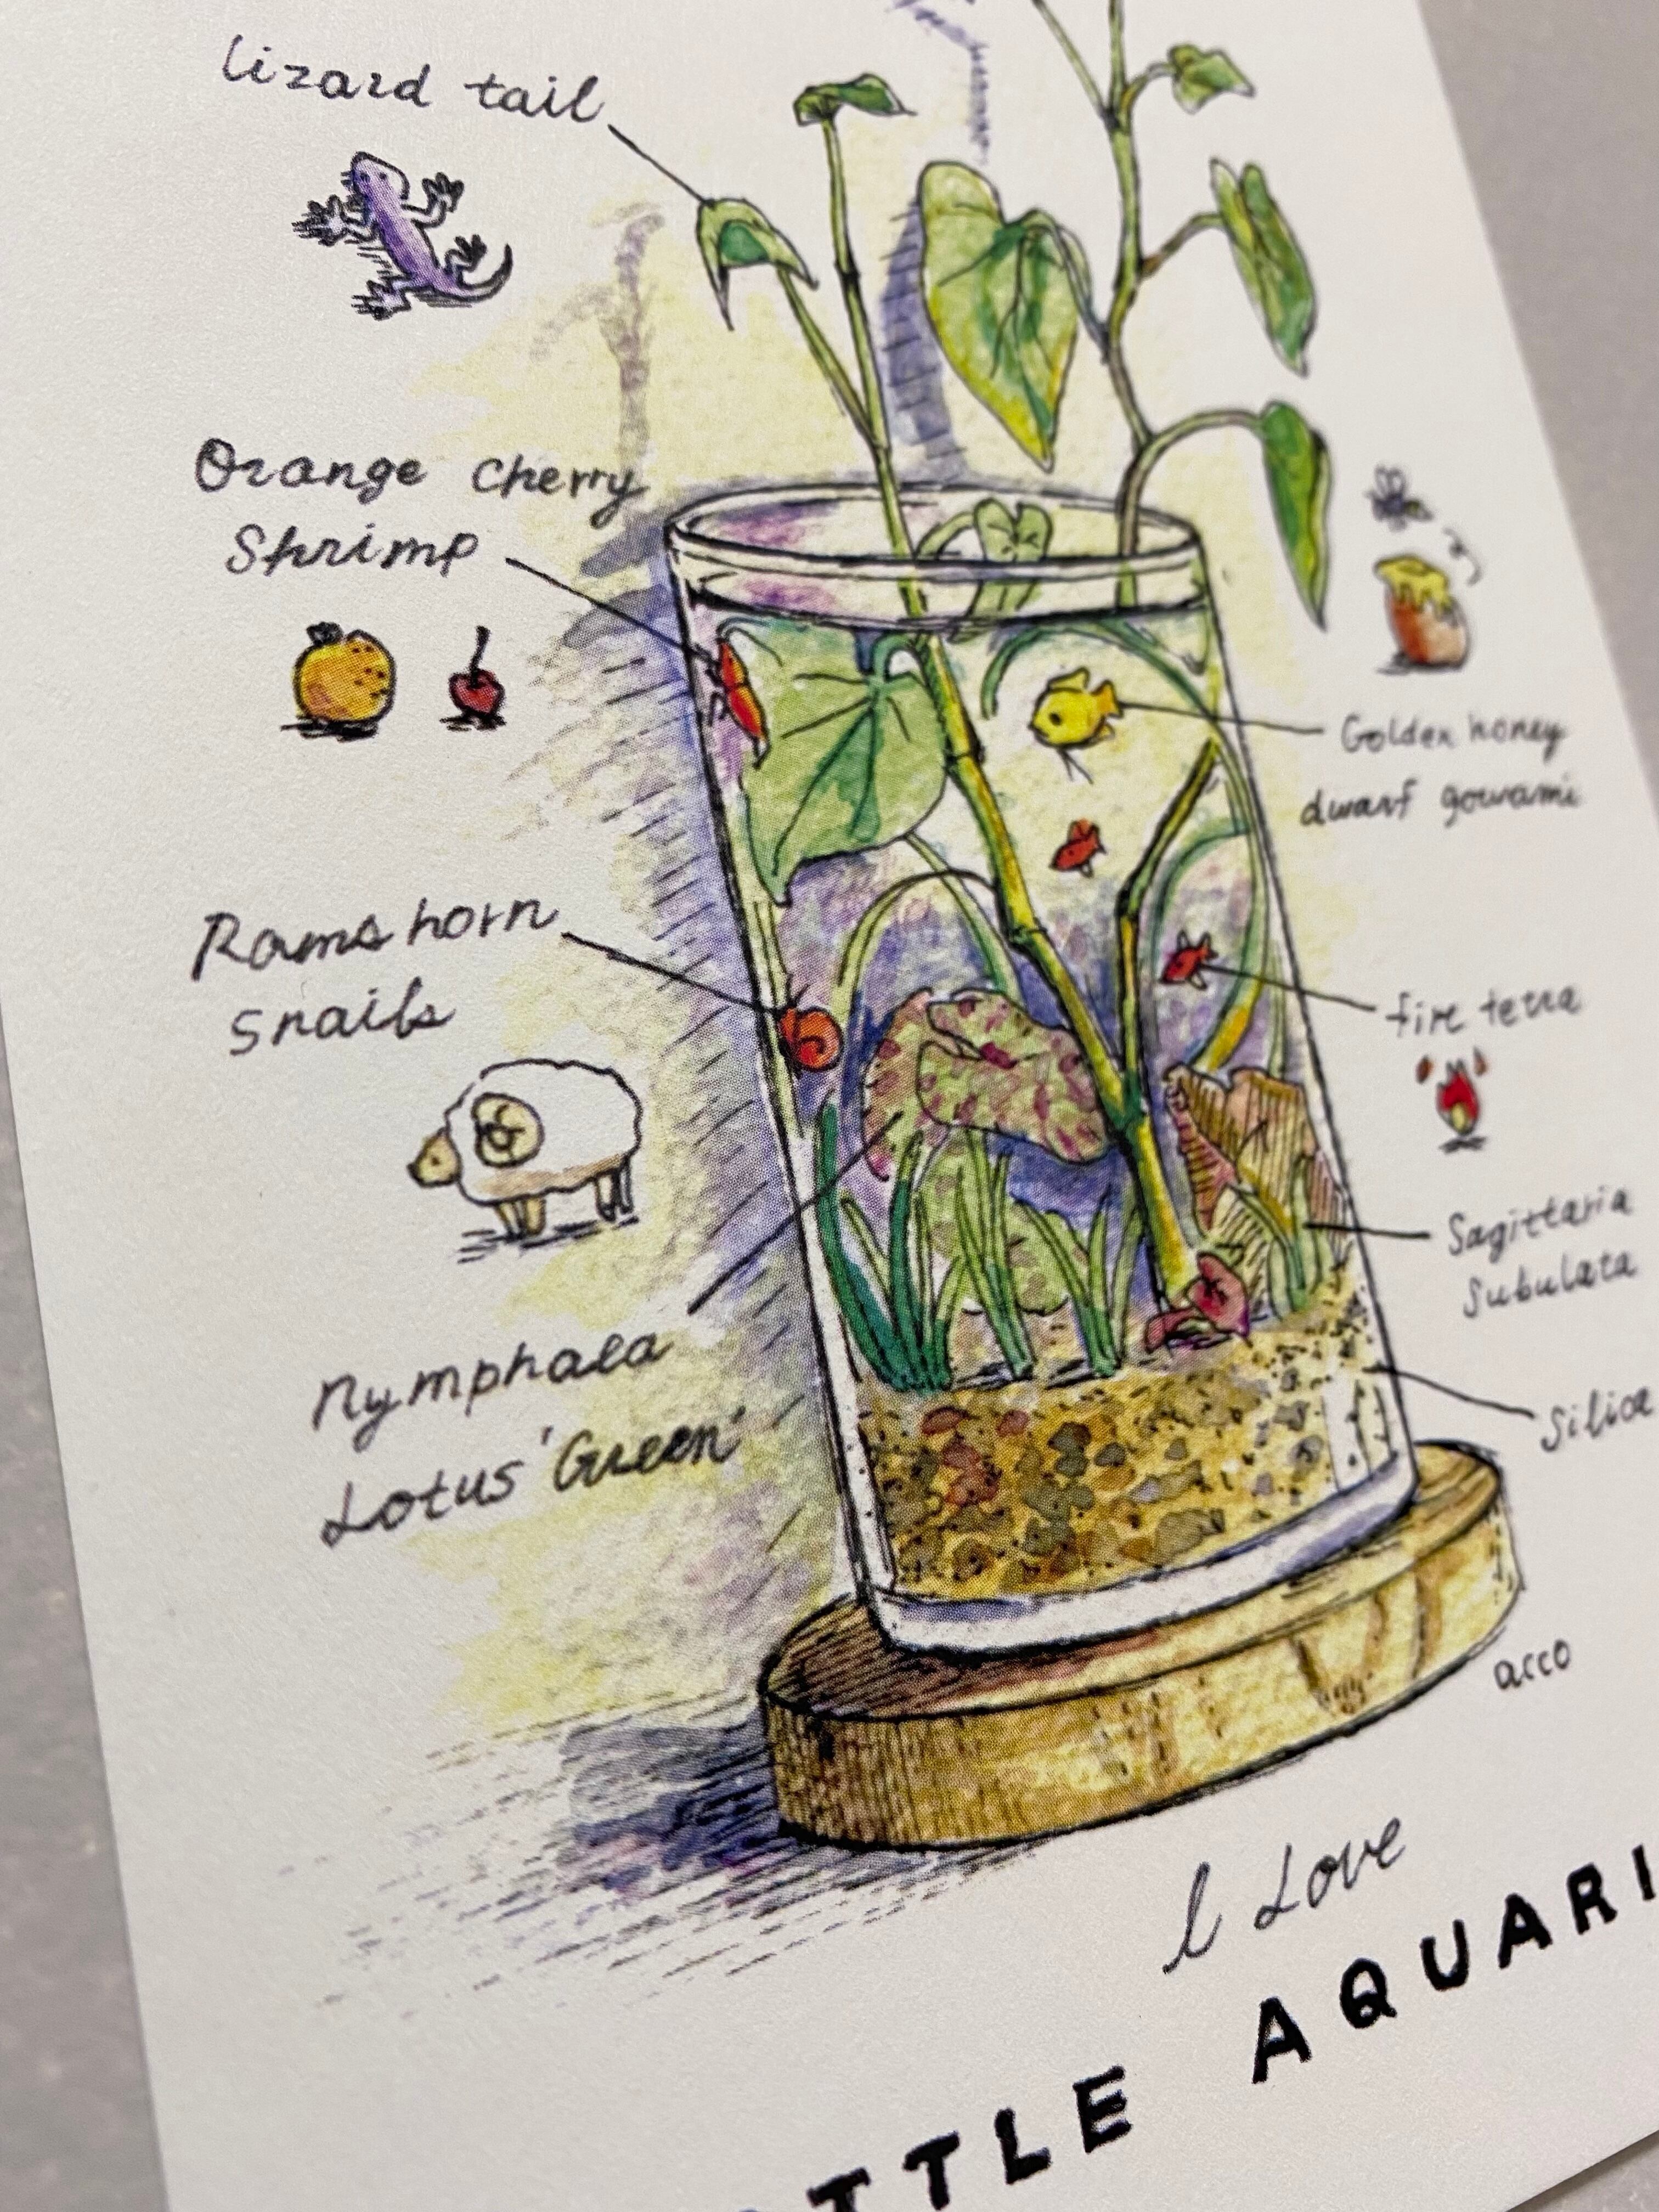 lizard tail
Orange cherry
Shrimp
Golden honey
dwarf gourami
Rams horn
snails
fire tetra
Sagittaria
Subulata
Nymphaea
Lotus 'Green'
Silica
acco
I Love
TTLE AQUARI